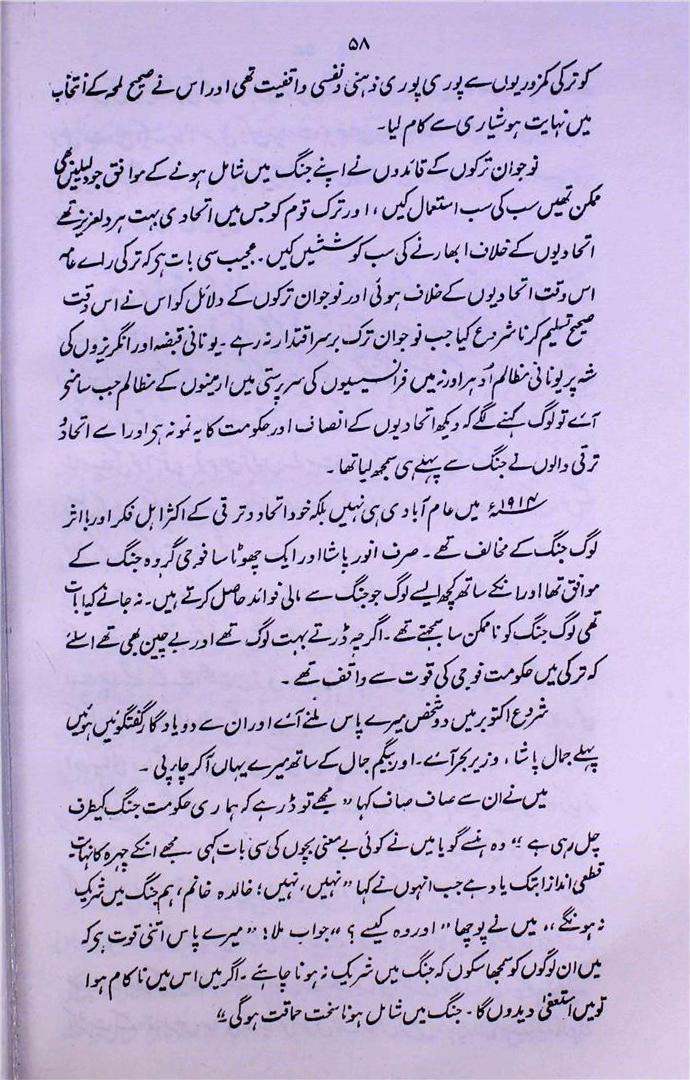 ۵۸
کو ترکی کمزوریوں سے پوری پوری ذہنی و نفسی واقفیت تھی اور اس نے صحیح لمحہ کے انتخاب
میں نہایت ہوشیاری سے کام لیا۔
نوجوان ترکوں کے قائدوں نے اپنے جنگ میں شامل ہونے کے موافق جو دلیلیں بھی
ممکن تھیں سب کی سب استعمال کیں، اور ترک قوم کو جس میں اتحادی بہت ہردلعزیز تھے
اتحادیوں کے خلاف ابھارنے کی سب کوششیں کیں۔ عجیب سی بات ہی کہ ترکی راے عامہ
اس وقت اتحادیوں کے خلاف ہوئی اور نوجوان ترکوں کے دلائل کو اس نے اس وقت
صحیح تسلیم کرنا شروع کیا جب نوجوان ترک برسر اقتدار نہ رہے۔ یونانی قبضہ اور انگریزوں کی
شہ پر یونانی مظالم اُدہر اور نہ میں فرانسیسیوں کی سرپرستی میں ارمینوں کے مظالم جب سامنے
آے تو لوگ کہنے لگے کہ دیکھ اتحادیوں کے انصاف اور حکومت کا یہ نمونہ ہی اور اسے اتحاد و
ترقی والوں نے جنگ سے پہلے ہی سمجھ لیا تھا۔
۱۹۱۴ء میں عام آبادی ہی نہیں بلکہ خود اتحاد و ترقی کے اکثر اہل فکر اور با اثر
لوگ جنگ کے مخالف تھے۔ صرف انور پاشا اور ایک چھوٹا سا فوجی گروہ جنگ کے
موافق تھا اور انکے ساتھ کچھ ایسے لوگ جو جنگ سے مالی فوائد حاصل کرتے ہیں۔ نہ جانے کیا بات
تھی لوگ جنگ کو ناممکن سا سمجھتے تھے۔ اگرچہ ڈرتے بہت لوگ تھے اور بے چین بھی تھے اسلئے
کہ ترکی میں حکومت فوجی کی قوت سے واقف تھے۔
شروع اکتوبر میں دو شخص میرے پاس ملنے آے اور ان سے دو یادگار گفتگوئیں ہوئیں
پہلے جمال پاشا، وزیر بحر آے۔ اور بیگم جمال کے ساتھ میرے یہاں آکر چار پی۔
میں نے ان سے صاف صاف کہا ”مجھے تو ڈر ہے کہ ہماری حکومت جنگ کیطرف
چل رہی ہے“ وہ ہنسے گویا میں نے کوئی بے معنی بچوں کی سی بات کہی مجھے انکے چہرہ کا نہایت
قطعی انداز ابتک یاد ہے جب انہوں نے کہا ”نہیں، نہیں؛ خالدہ خانم، ہم جنگ میں شریک
نہ ہونگے“ میں نے پوچھا ”اور وہ کیسے؟“ جواب ملا: ”میرے پاس اتنی قوت ہی کہ
میں ان لوگوں کو سمجھا سکوں کہ جنگ میں شریک نہ ہونا چاہئے۔ اگر میں اس میں ناکام ہوا
تو میں استعفیٰ دیدوں گا۔ جنگ میں شامل ہونا سخت حماقت ہوگی“